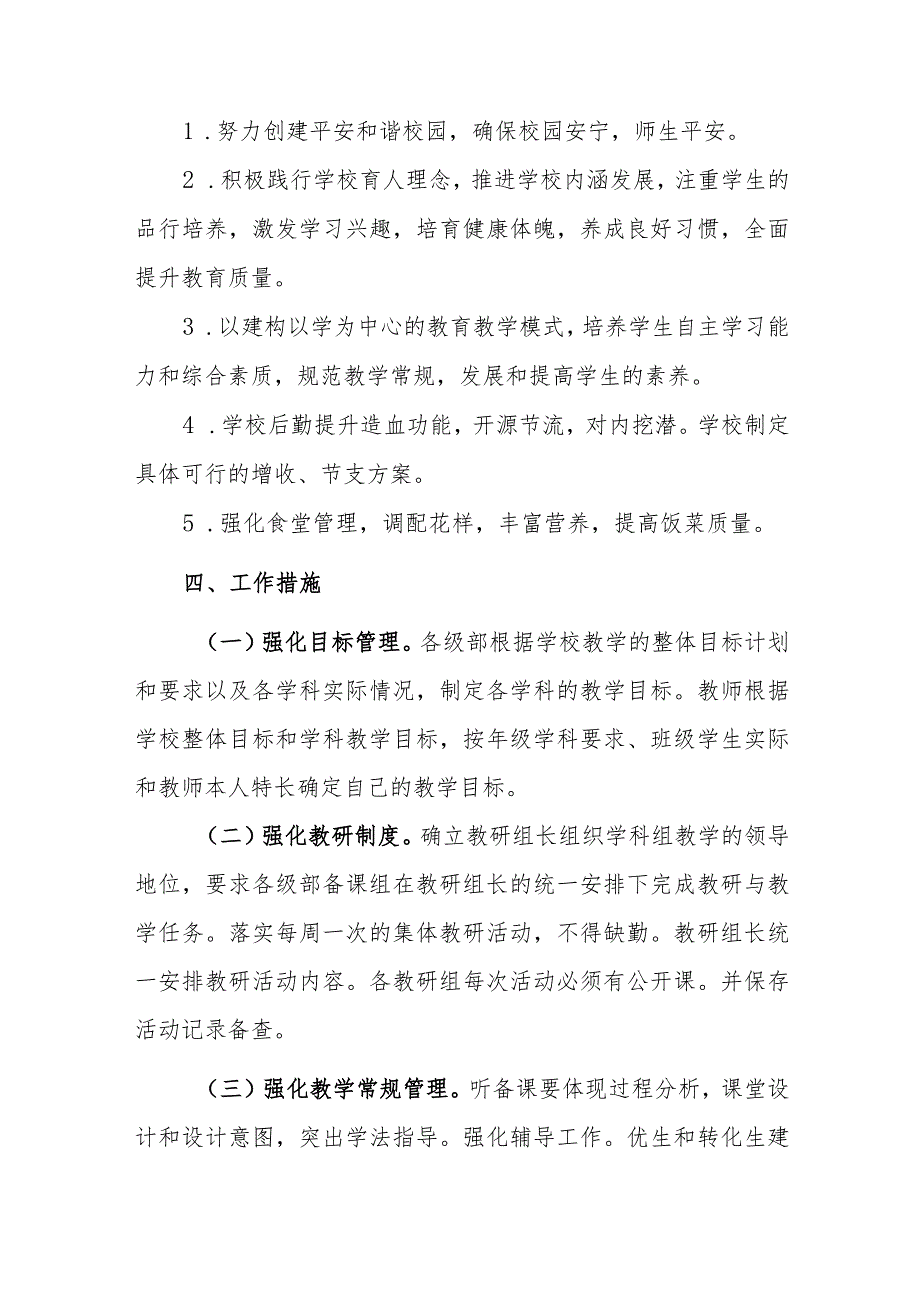 1 .努力创建平安和谐校园，确保校园安宁，师生平安。
2 .积极践行学校育人理念，推进学校内涵发展，注重学生的
品行培养，激发学习兴趣，培育健康体魄，养成良好习惯，全面
提升教育质量。
3 .以建构以学为中心的教育教学模式，培养学生自主学习能
力和综合素质，规范教学常规，发展和提高学生的素养。
4 .学校后勤提升造血功能，开源节流，对内挖潜。学校制定
具体可行的增收、节支方案。
5 .强化食堂管理，调配花样，丰富营养，提高饭菜质量。
四、工作措施
（一）强化目标管理。各级部根据学校教学的整体目标计划
和要求以及各学科实际情况，制定各学科的教学目标。教师根据
学校整体目标和学科教学目标，按年级学科要求、班级学生实际
和教师本人特长确定自己的教学目标。
（二）强化教研制度。确立教研组长组织学科组教学的领导
地位，要求各级部备课组在教研组长的统一安排下完成教研与教
学任务。落实每周一次的集体教研活动，不得缺勤。教研组长统
一安排教研活动内容。各教研组每次活动必须有公开课。并保存
活动记录备查。
（三）强化教学常规管理。听备课要体现过程分析，课堂设
计和设计意图，突出学法指导。强化辅导工作。优生和转化生建